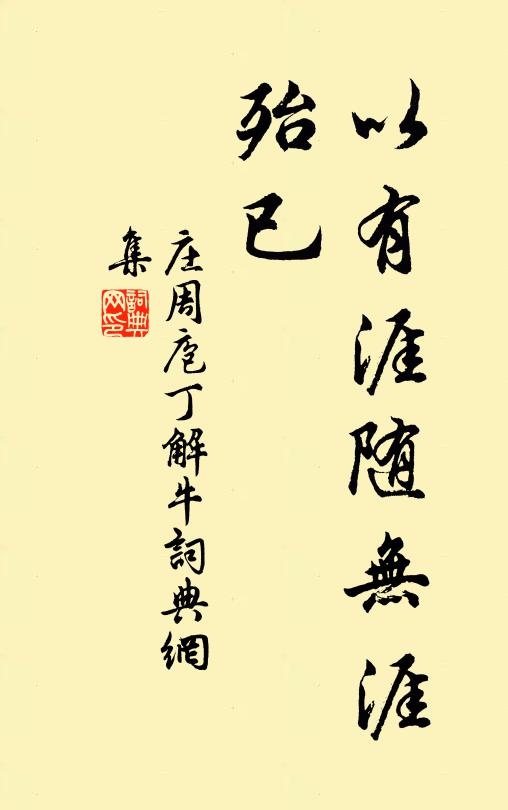 以有涯随無涯
殆已
庄周庖丁解牛詞典網
集
詞典
网印